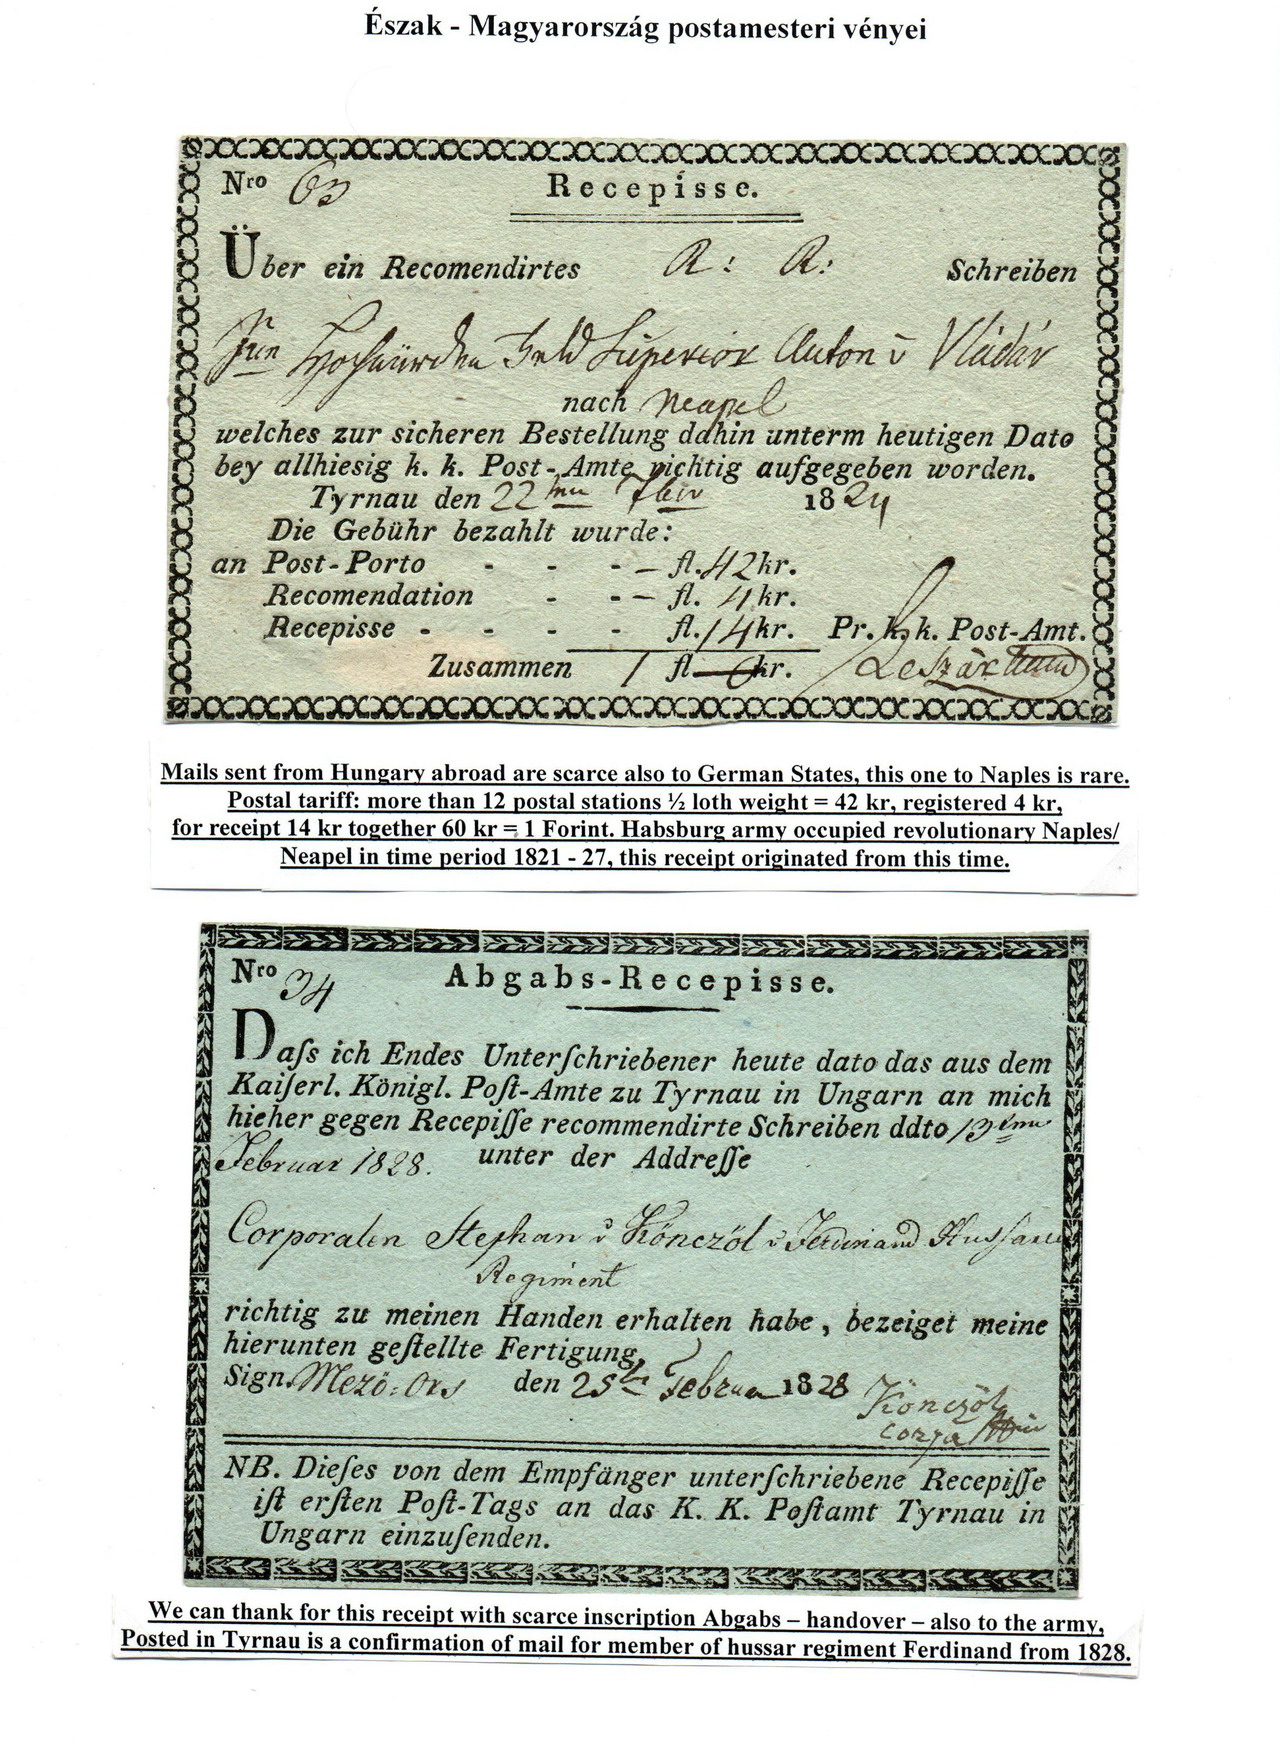 Észak - Magyarország postamesteri vényei
Nro 63 Recepisse.
Über ein Recomendirtes R: R: Schreiben
Hochwürden Feld Superior Anton v Vládár
nach Neapel
welches zur sicheren Bestellung dahin unterm heutigen Dato
bey allhiesig k. k. Post-Amte richtig aufgegeben worden.
Tyrnau den 22ten 7ber 1824
Die Gebühr bezahlt wurde:
an Post-Porto - - - — fl. 42 kr.
Recomendation - - — fl. 4 kr.
Recepisse - - - - fl. 14 kr. Pr. k. k. Post-Amt.
Zusammen 1 fl — kr.
Mails sent from Hungary abroad are scarce also to German States, this one to Naples is rare.
Postal tariff: more than 12 postal stations ½ loth weight = 42 kr, registered 4 kr,
for receipt 14 kr together 60 kr = 1 Forint. Habsburg army occupied revolutionary Naples/
Neapel in time period 1821 - 27, this receipt originated from this time.
Nro 34 Abgabs-Recepisse.
Daſs ich Endes Unterſchriebener heute dato das aus dem
Kaiſerl. Königl. Poſt-Amte zu Tyrnau in Ungarn an mich
hieher gegen Recepiſſe recommendirte Schreiben ddto 13ten
Februar 1828. unter der Addreſſe
Corporalen Stephan v Könczöl v Ferdinand Hussaren
Regiment
richtig zu meinen Handen erhalten habe, bezeiget meine
hierunten geſtellte Fertigung,
Sign. Mezö-Örs den 25te Februar 1828 Könczöl
NB. Dieſes von dem Empfänger unterſchriebene Recepiſſe
iſt erſten Poſt-Tags an das K. K. Poſtamt Tyrnau in
Ungarn einzuſenden.
We can thank for this receipt with scarce inscription Abgabs – handover – also to the army,
Posted in Tyrnau is a confirmation of mail for member of hussar regiment Ferdinand from 1828.